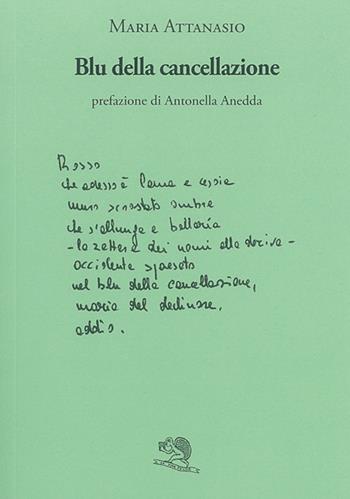 Maria Attanasio
Blu della cancellazione
prefazione di Antonella Anedda
Rosso
che adesso è lama e
muro scrostato ombra
che s'allunga e
- la zattera dei nomi alla deriva -
occidente spaesato
nel blu della cancellazione,
maria del declinare,
addio.